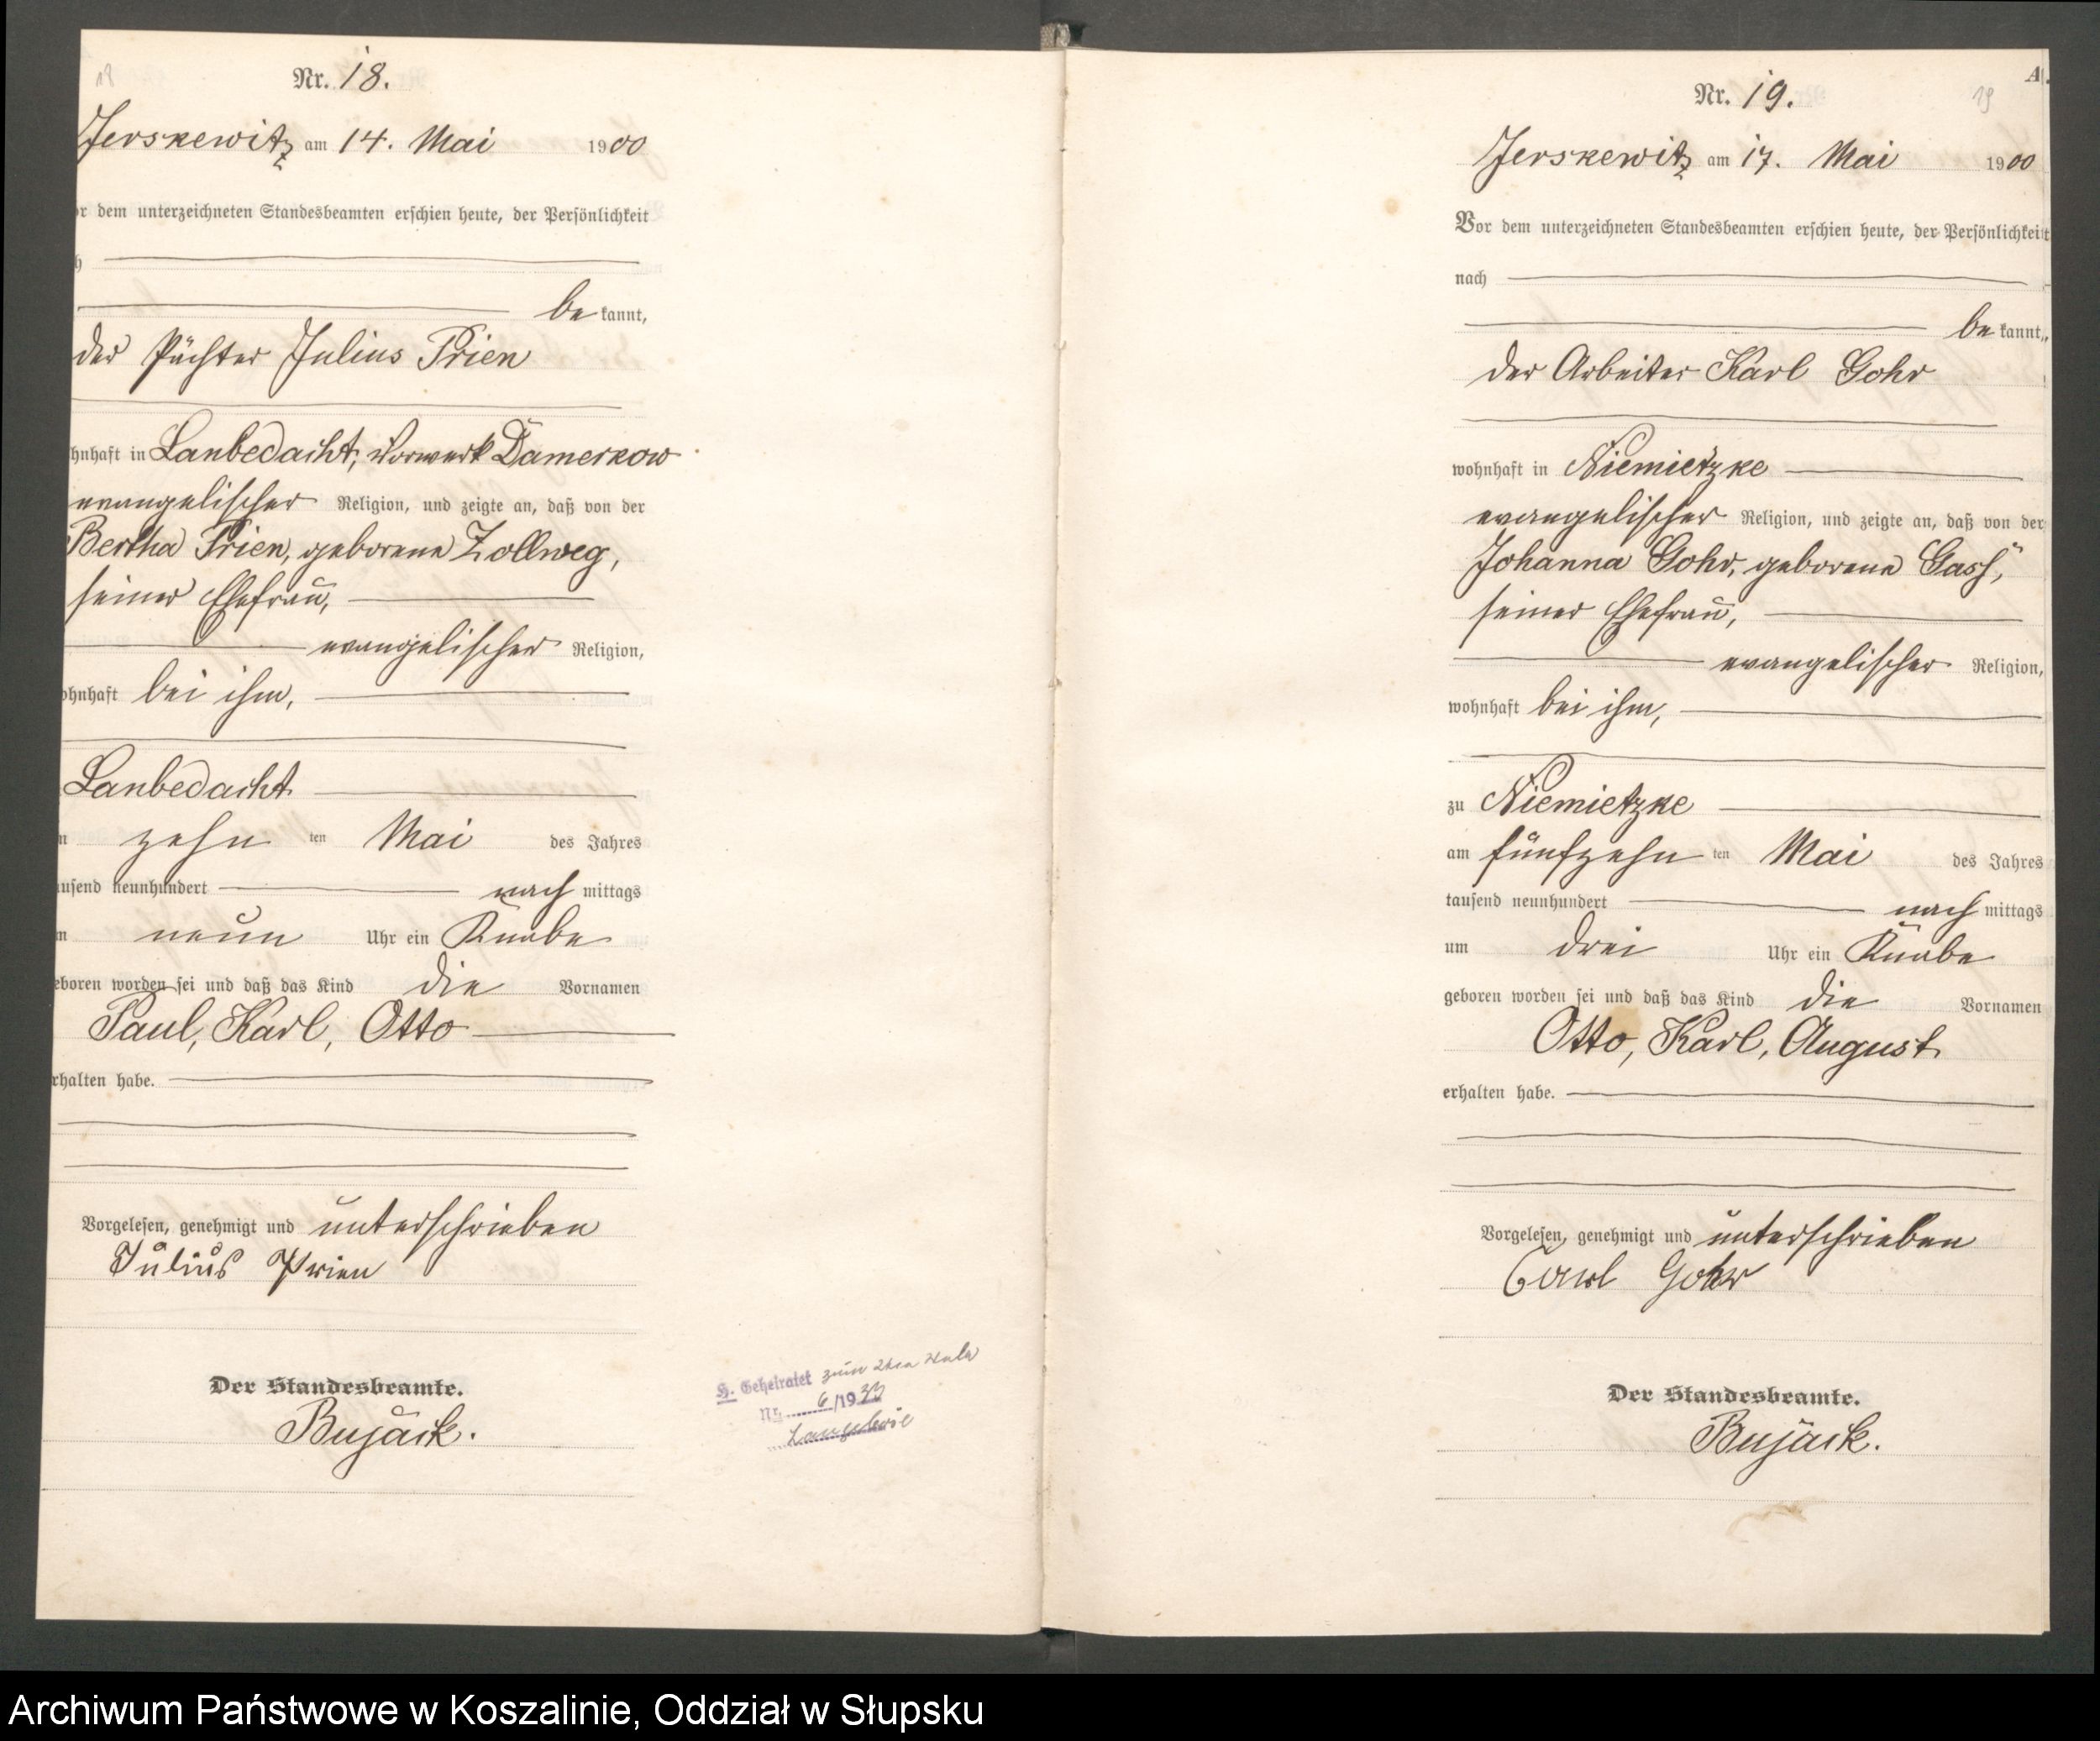 18
Nr. 18.
Jerskewitz am 14. Mai 1900
r dem unterzeichneten Standesbeamten erschien heute, der Persönlichkeit
h
bekannt,
der Pächter Julius Prien
hnhaft in Lanbedacht, Vorwerk Damerkow
evangelischer Religion, und zeigte an, daß von der
Bertha Prien, geborene Zollweg,
seiner Ehefrau,
evangelischer Religion,
ohnhaft bei ihm,
Lanbedacht
n zehn ten Mai des Jahres
ausend neunhundert nachmittags
m neun Uhr ein Knabe
eboren worden sei und daß das Kind die Vornamen
Paul, Karl, Otto
rhalten habe.
Vorgelesen, genehmigt und unterschrieben
Julius Prien
Der Standesbeamte.
Bujack.
H. Geheiratet zum 2ten Male
Nr. 6/1933
A.
19
Nr. 19.
Jerskewitz am 17. Mai 1900
Vor dem unterzeichneten Standesbeamten erschien heute, der Persönlichkeit
nach
bekannt,
der Arbeiter Karl Gohr
wohnhaft in Niemietzke
evangelischer Religion, und zeigte an, daß von der
Johanna Gohr, geborene Gass,
seiner Ehefrau,
evangelischer Religion,
wohnhaft bei ihm,
zu Niemietzke
am fünfzehn ten Mai des Jahres
tausend neunhundert nachmittags
um drei Uhr ein Knabe
geboren worden sei und daß das Kind die Vornamen
Otto, Karl, August
erhalten habe.
Vorgelesen, genehmigt und unterschrieben
Carl Gohr
Der Standesbeamte.
Bujack.
Archiwum Państwowe w Koszalinie, Oddział w Słupsku